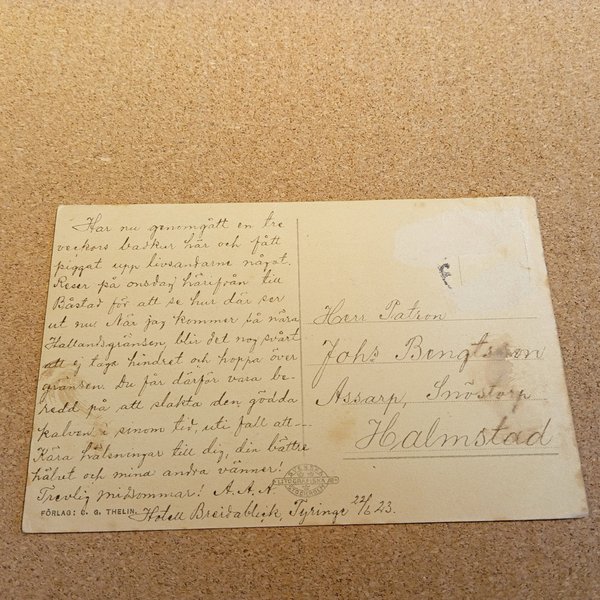 Har nu genomgått en tre
veckors badkur här och fått
piggat upp livsandarne något.
Reser på onsdag härifrån till
Båstad för att se hur där ser
ut nu. När jag kommer så nära
Hallandsgränsen, blir det nog svårt
att ej taga hindret och hoppa över
gränsen. Du får därför vara be-
redd på att slakta den gödda
kalven i sinom tid, uti fall att—
Kära hälsningar till dig, din bättre
hälvt och mina andra vänner!
Trevlig midsommar! A. A. A.
Hotell Breidablick, Tyringe 22/6 23.
FÖRLAG: C. G. THELIN.
Herr Patron
Johs Bengtsson
Assarp, Snöstorp
Halmstad